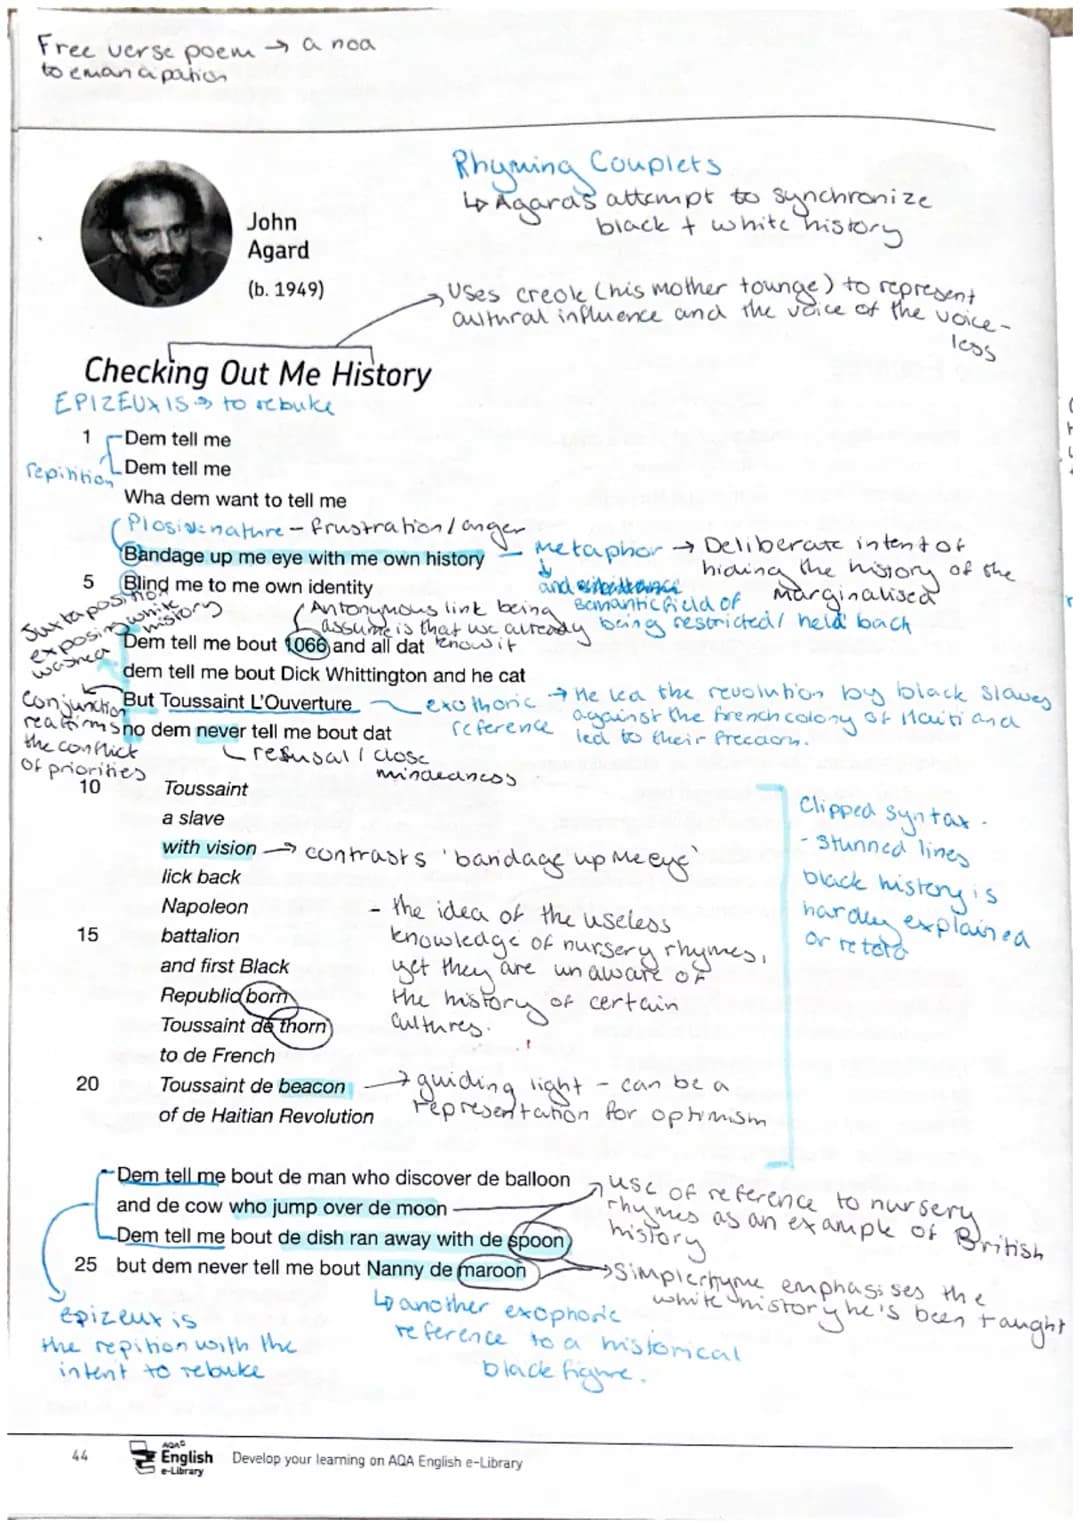 Free verse poem → a noa
to emancipation
Rhyming Couplets
↳ Agards attempt to synchronize
black + white history
John
Agard
(b. 1949)
Uses creole (his mother tounge) to represent
cultural influence and the voice of the voice-
less
Checking Out Me History
EPIZEUXIS → to rebuke
1 Dem tell me
repinition
Dem tell me
Wha dem want to tell me
Plosive nature - frustration/anger
Bandage up me eye with me own history
Metaphor → Deliberate intent of
hiding the history of the
marginalised
and
semantic field of
being restricted/ held back
5 Blind me to me own identity
Juxtaposition
exposing white
washed history
Antonymous link being
assume is that we already
know it
Dem tell me bout 1066 and all dat
dem tell me bout Dick Whittington and he cat
But Toussaint L'Ouverture
no dem never tell me bout dat
Conjunction
reaffirms
the conflict
of priorities
exothoric
reference
→ He led the revolution by black slaves
against the french colony of Haiti and
led to their freedom.
refusal / close
mindedness
10 Toussaint
a slave
with vision
→ contrasts 'bandage up me eye'
lick back
Napoleon
15 battalion
and first Black
Republic born
Toussaint de thorn
to de French
20 Toussaint de beacon
of de Haitian Revolution
- the idea of the useless
knowledge of nursery rhymes,
yet they are unaware of
the history of certain
cultures.
→ guiding light - can be a
representation for optimism
Clipped syntax -
- Stunned lines
black history is
hardly explained
or retold
Dem tell me bout de man who discover de balloon
and de cow who jump over de moon
Dem tell me bout de dish ran away with de spoon
25 but dem never tell me bout Nanny de maroon
use of reference to nursery
rhymes as an example of British
history
→ Simple rhyme emphasises the
white history he's been taught
epizeuxis
the repition with the
intent to rebuke
↳ another exophoric
reference to a historical
black figure.
44
AQA
English
e-Library
Develop your learning on AQA English e-Library